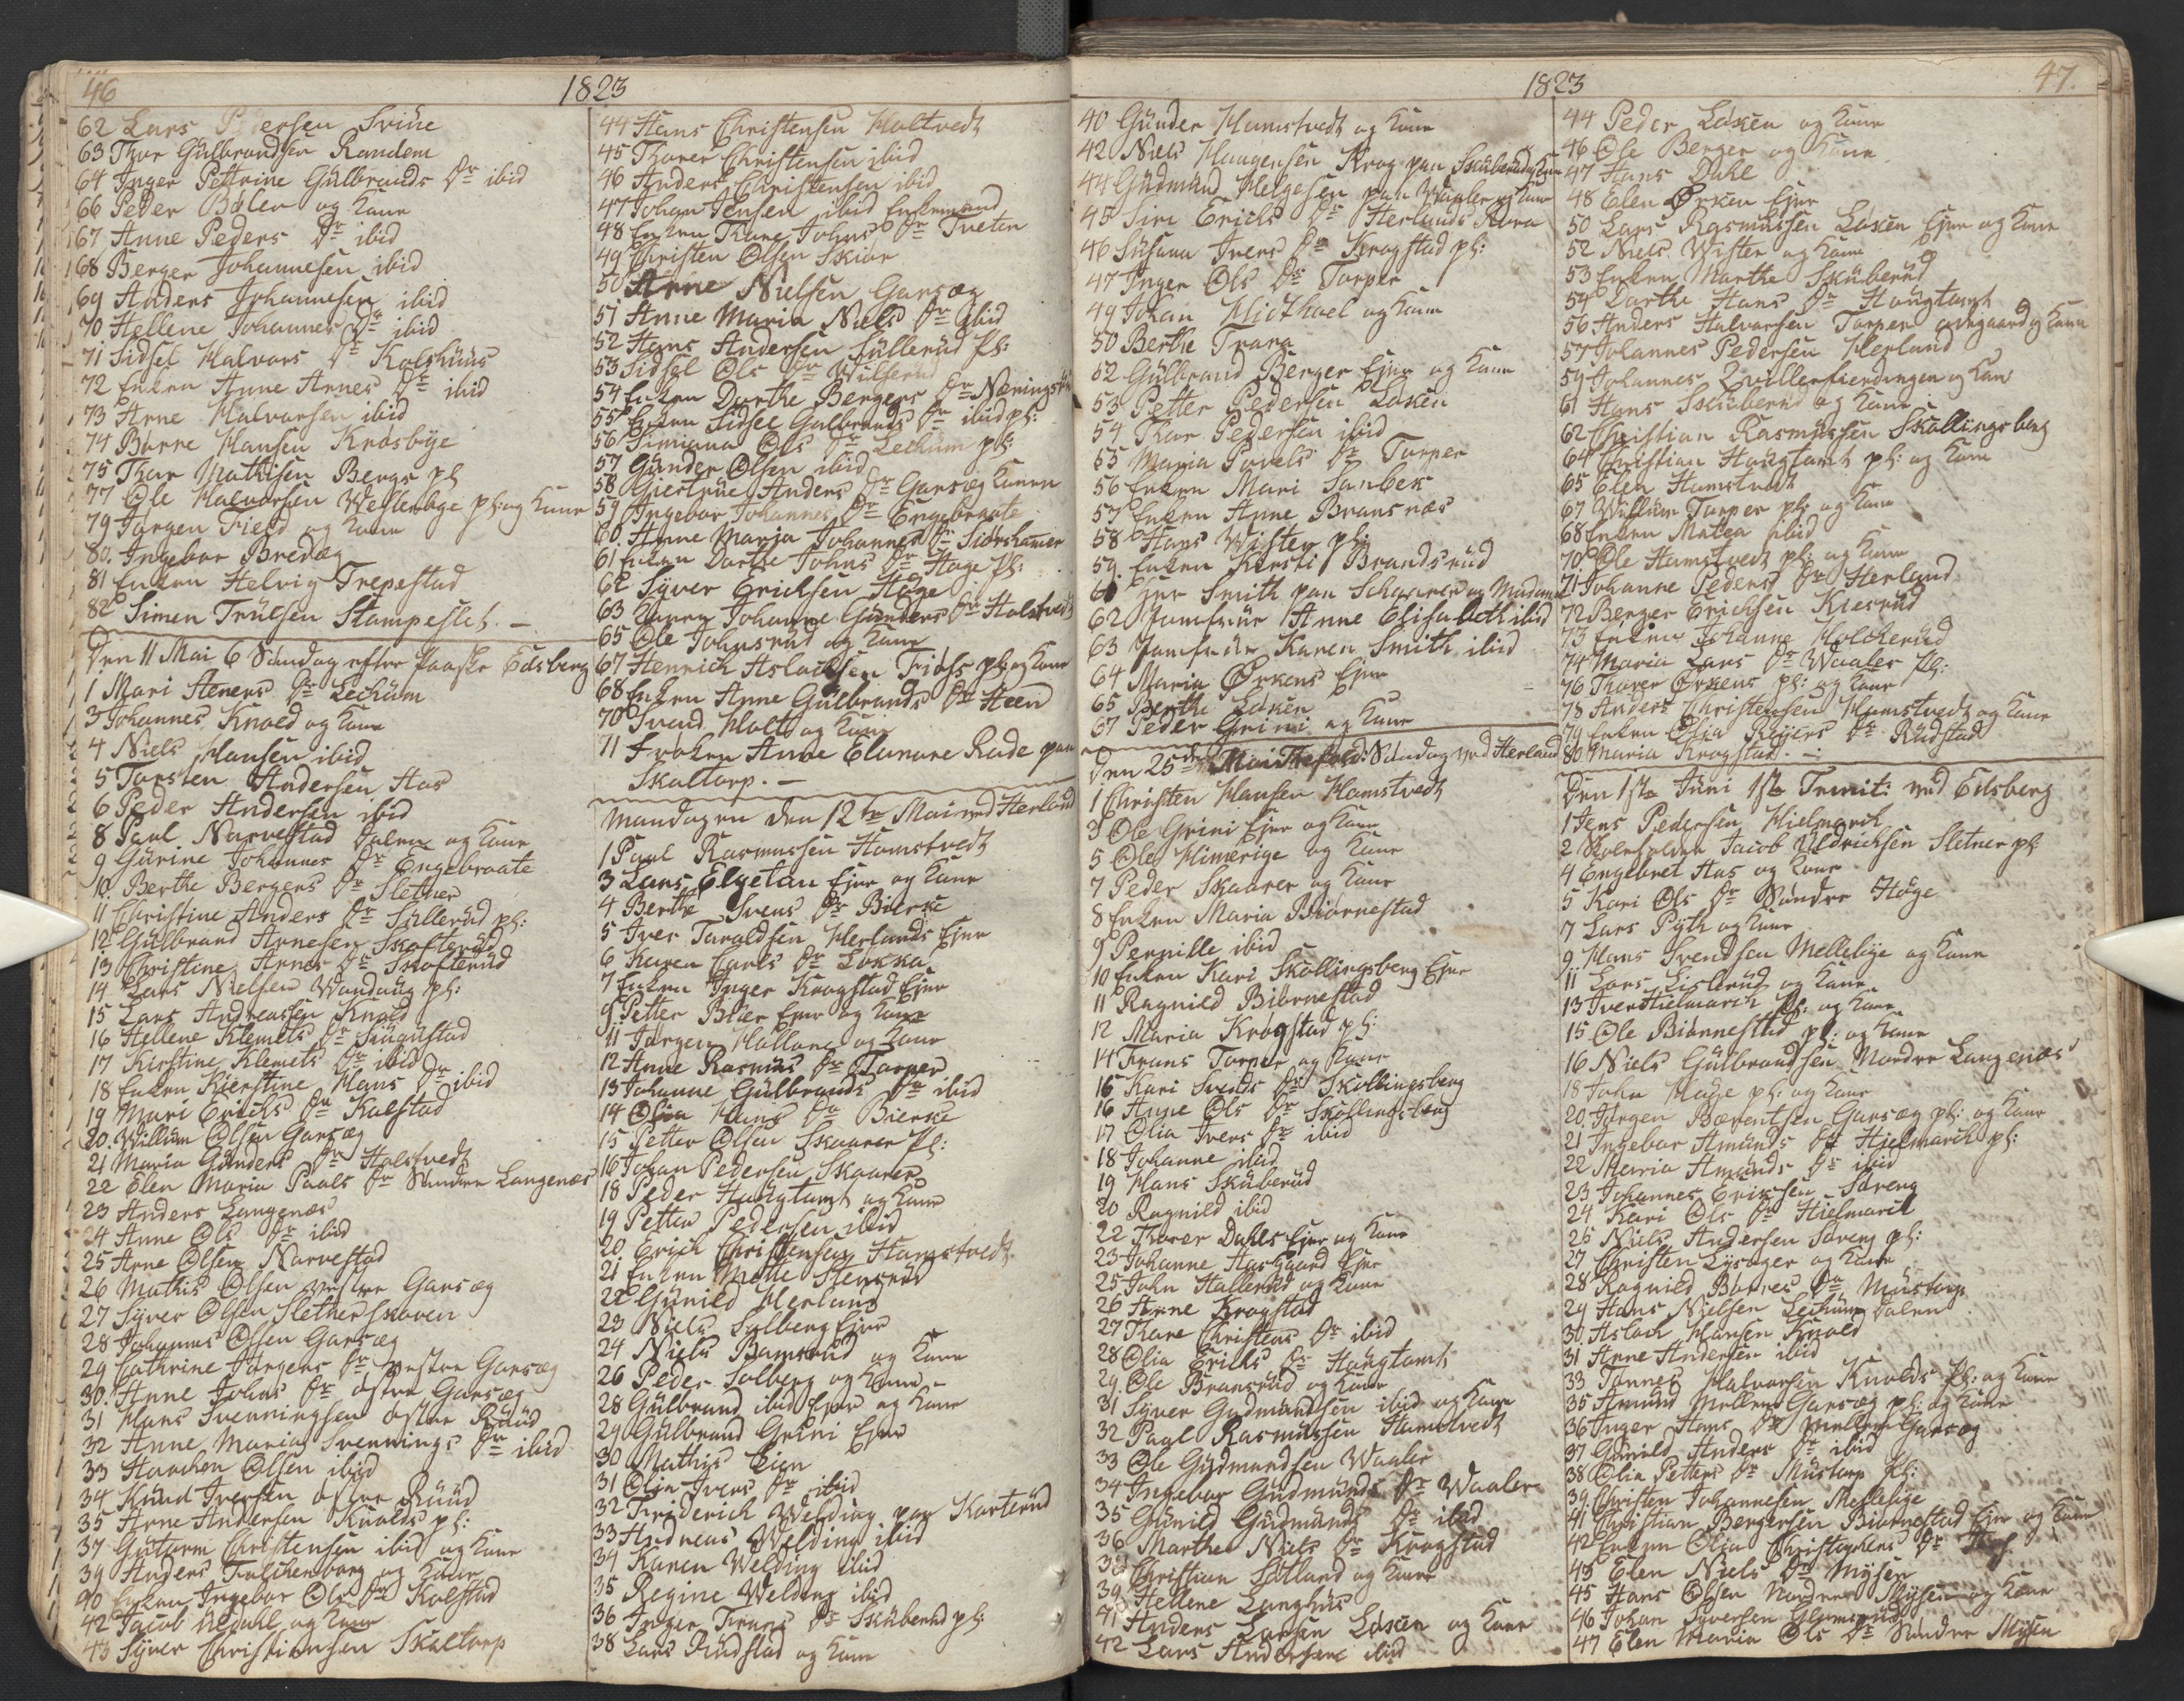 46
1823
62 Lars Pedersen Svine
63 Thor Gülbrandsen Randem
64 Inger Pettrine Gülbrands Dr ibid
66 Peder Bøler og Kone
67 Anne Peders Dr ibid
68 Berger Johannesen ibid
69 Anders Johannesen ibid
70 Hellene Johannes Dr ibid
71 Sidsel Halvors Dr Kolshuus
72 Enken Anne Arnes Dr ibid
73 Arne Halvorsen ibid
74 Børre Hansen Krosbye
75 Thor Mathisen Bergs pl
77 Ole Halvorsen Mellebye pl: og Kone
79 Jørgen Field og Kone
80. Ingebor Bredæg
81 Enken Helvig Trepestad
82 Simen Trülsen Stampeslet. –
Den 11 Mai 6 Søndag efter Paaske Edsberg
1 Mari Steners Dr Lechüm
3 Johannes Knold og Kone
4 Niels Hansen ibid
5 Torsten Andersen Aas
6 Peder Andersen ibid
8 Paul Narvestad Dalen og Kone
9 Gürine Johannes Dr Engebraate
10. Berthe Bergers Dr Sletner
11 Christine Anders Dr Süllerüd pl:
12 Gülbrand Arnesen Skofterüd
13 Christine Arnes Dr Skofterüd
14 Lars Nielsen Vandüüg pl:
15 Lars Andreassen Knold
16 Hellene Klemets Dr Süügüstad
17 Kirstine Klemets Dr ibid
18 Enken Kierstine Hans Dr ibid
19 Mari Erichs Dr Kolstad
20. Willum Olsen Garsæg
21 Maria Günders Dr Holstvedt
22 Elen Maria Pauls Dr Søndre Langenæs
23 Anders Langenæs
24 Anne Ols Dr ibid
25 Arne Olsen Narvestad
26 Mathis Olsen vestre Garsæg
27 Syver Olsen Sletnerskoven
28 Johannes Olsen Garsæg
29 Cathrine Jørgens Dr vestre Garsæg
30. Anne Johns Dr østre Garsæg
31 Hans Svenningsen østre Rüüd
32 Anne Maria Svennings Dr ibid
33 Haachen Olsen ibid
34 Knud Iversen østre Rüüd
35 Arne Andersen Knolds pl:
37 Gutorm Christensen ibid og Kone
39 Anders Falchenborg og Kone
40 Enken Ingebor Ols Dr Kolstad
42 Jacob Nedahl og Kone
43 Syver Christiansen Skaltorp
44 Hans Christensen Holtvedt
45 Thorer Christensen ibid
46 Anders Christensen ibid
47 Johan Jensen ibid Enkemand
48 Enken Thore Johns Dr Tveten
49 Christen Olsen Skiør
50 Arne Nielsen Garsæg
51 Anne Maria Niels Dr ibid
52 Hans Andersen Süllerüd Pl:
53 Sidsel Ols Dr Wilserüd
54 Enken Dorthe Bergers Dr Næringsrüd
55 Enken Sidsel Gulbrands Dr ibid pl:
56 Simiana Ols Dr Lechüm pl:
57 Günder Olsen ibid
58 Giertrüe Anders Dr Garsæg Konen
59 Ingebor Johannes Dr Engebraate
60. Anne Maria Johannes Dr Siørshamer
61 Enken Dorthe Johns Dr Hoge Pl:
62 Syver Erichsen Høge
63 Enken Johanne Günders Dr Holstvedt
65 Ole Johnsrud og Kone
67 Henrich Aslachsen Fiøss pl: og Kone
68 Enken Anne Gülbrands Dr Steen
70 Svend Holt og Kone
71 Frøken Anne Elenore Rode paa
Skaltorp. –
Mandagen den 12te Mai ved Herland
1 Paul Rasmussen Hamstvedt
3 Lars Elgetun Ejer og Kone
4 Berthe Svens Dr Bierke
5 Iver Taraldsen Herlands Ejer
6 Karen Carls Dr Løkka
7 Enken Inger Krogstad Ejer
9 Petter Blier Ejer og Kone
11 Jørgen Hallone og Kone
12 Anne Rasmus Dr Torper
13 Johanne Gülbrands Dr ibid
14 Olia Hans Dr Bierke
15 Petter Olsen Skaarer Pl:
16 Johan Pedersen Skaarer
18 Peder Haügtomt og Kone
19 Petter Pedersen ibid
20 Erich Christensen Hamstvedt
21 Enken Mette Stensrüd
22 Günild Herland
23 Niels Solberg Ejer
24 Niels Bamsrüd og Kone
26 Peder Solberg og Kone –
28 Gülbrand ibid Ejer og Kone
29 Gülbrand Grini Ejer
30 Mathis Lien
31 Olia Ivers Dr ibid
32 Friderich Welding paa Korterüd
33 Andreas Welding ibid
34 Karen Welding ibid
35 Regine Welding ibid
36 Inger Frans Dr Sküberud pl:
38 Lars Rüdstad og Kone
1823
47.
40 Günder Hamstvedt og Kone
42 Niels Haagensen Krog paa Sküberud og Kone
44 Güdmund Helgesen paa Waaler og Kone
45 Siri Erichs Dr Herlands Kora
46 Süsana Ivers Dr Krogstad pl:
47 Inger Ols Dr Torper
49 Johan Michael og Kone
50 Berthe Trara
52 Gülbrand Berger Ejer og Kone
53 Petter Pedersen Løken
54 Thor Pedersen ibid
55 Maria Povels Dr Torper
56 Enken Mari Sanbek
57 Enken Anne Bransnæs
58 Hans Wister pl:
59. Enken Kirsti Brandsrüd
61 Herr Smith paa Schaarer og Madame
62 Jomfrüe Anne Elisabeth ibid
63 Jomfrüe Karen Smith ibid
64 Maria Ørkens Ejer
65 Berthe Løken
67 Peder Grini og Kone
Den 25de Mai Trefold: Søndag ved Herland
1 Christen Hansen Hamstvedt
3 Ole Grini Ejer og Kone
5 Ole Himerige og Kone
7 Peder Skaarer og Kone
8 Enken Maria Biørnestad
9 Pernille ibid
10 Enken Kari Skollingsberg Ejer
11 Ragnild Biørnestad
12 Maria Krogstad pl:
14 Frans Torper og Kone
15 Kari Svends Dr Skollingsberg
16 Anne Ols Dr Skollingsberg
17 Olia Ivers Dr ibid
18 Johanne ibid
19 Hans Sküberüd
20 Ragnild ibid
22 Thorer Dahls Ejer og Kone
23 Johanne Aasgaard Ejer
25 John Hallerüd og Kone
26 Arne Krogstad
27 Thore Christens Dr ibid
28 Olia Erichs Dr Haügtomt
29. Ole Bransrüd og Kone
31 Syver Gudmundsen ibid og Kone
32 Paul Rasmussen Hamstvedt
33 Ole Güdmundsen Waaler
34 Ingebor Güdmünds Dr Waaler
35 Günild Güdmünds Dr ibid
36 Marthe Niels Dr Krogstad
38 Christian Søtland og Kone
39 Hellene Langhüs
41 Anders Larsen Løken og Kone
42 Lars Andersen ibid
44 Peder Løken og Kone
46 Ole Berger og Kone
47 Hans Dahl
48 Elen Ørken Ejer
50 Lars Rasmussen Løken Ejer og Kone
52 Niels Wister og Kone
53 Enken Marthe Sküberüd
54 Dorthe Hans Dr Haügtomt
56 Anders Halvorsen Torper øvregaard og Kone
57 Johannes Pedersen Herland
59 Johannes Qvillerfierdingen og Kone
61 Hans Sküberud og Kone
62 Christian Rasmussen Skollingsberg
64 Christian Haügtomt pl: og Kone
65 Elen Hamstvedt
67 Willum Torper pl: og Kone
68 Enken Matea ibid
70. Ole Hamstvedt pl: og Kone
71 Johanne Peders Dr Herland
72 Berger Erichsen Kiesrüd
73 Enken Johanne Holcherüd
74 Maria Lars Dr Waaler Pl:
76 Thorer Ørkens pl: og Kone
78 Anders Christensen Hamstvedt og Kone
79 Enken Olia Reiers Dr Rüdstad
80. Maria Krogstad. –
Den 1ste Juni 1ste Trinit: ved Edsberg
1 Jens Pedersen Hielmarch
2 Jacob Uldrichsen Sletner pl:
4 Engebret Aas og Kone
5 Kari Ols Dr Søndre Høge
7 Lars Pyth og Kone
9 Hans Svendsen Mellebye og Kone
11 Lars Lislerüd og Kone
13 Iver Hielmarch Pl: og Kone
15 Ole Biørnestad pl: og Kone
16 Niels Gülbrandsen Nordre Langenæs
18 John Høje pl: og Kone
20. Jørgen Bærentsen Garsæg pl: og Kone
21 Ingebor Amünds Dr Hielmarch pl:
22 Maria Amünds Dr ibid
23 Johannes Erichsen Søreng
24 Kari Ols Dr Hielmarch
25 Niels Andersen Søreng pl:
27 Christen Lysager og Kone
28 Ragnild Børres Dr Müstorp
29 Hans Nielsen Lechüm Dalen
30. Aslach Hansen Knold
31 Anne Andersen ibid
33 Tønnes Halvorsen Knolds Pl: og Kone
35 Amund Mellem Garsæg pl: og Kone
36 Inger Hans Dr Mellem Garsæg
37 Günild Anders Dr ibid
38 Olia Petters Dr Müstorp Pl:
39. Christen Johannesen Mellebye
41 Christian Bergersen Biørnestad Ejer og Kone
42 Enken Olia Christophers Dr
43 Elen Niels Dr Mysen
45 Hans Olsen Nordre Mysen og Kone
46 Johan Syversen
47 Elen Maria Ols Dr Søndre Mysen